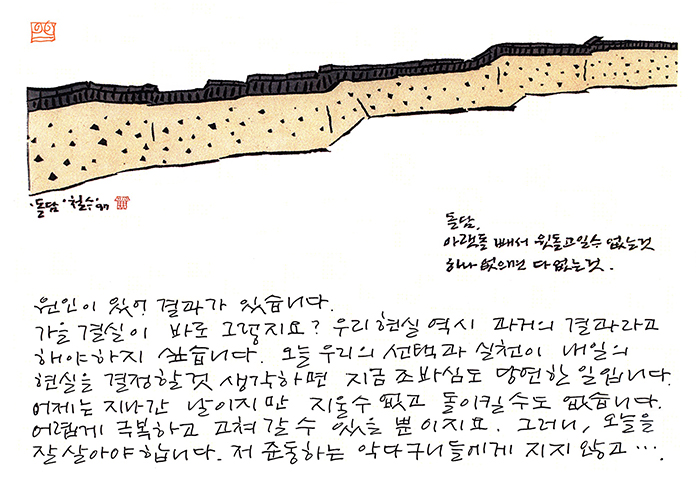 '돌담' 철수 '97
돌담.
아랫돌 빼서 윗돌 고일 수 없는 것
하나 없으면 다 없는 것.
원인이 있어 결과가 있습니다.
가을 결실이 바로 그렇지요? 우리 현실 역시 과거의 결과라고
해야하지 싶습니다. 오늘 우리의 선택과 실천이 내일의
현실을 결정할 것 생각하면 지금 조바심도 당연한 일입니다.
어제는 지나간 날이지만 지울 수 없고 돌이킬 수도 없습니다.
어렵게 극복하고 고쳐 갈 수 있을 뿐이지요. 그러니, 오늘을
잘 살아야 합니다. 저 준동하는 악다구니들에게 지지 않고….